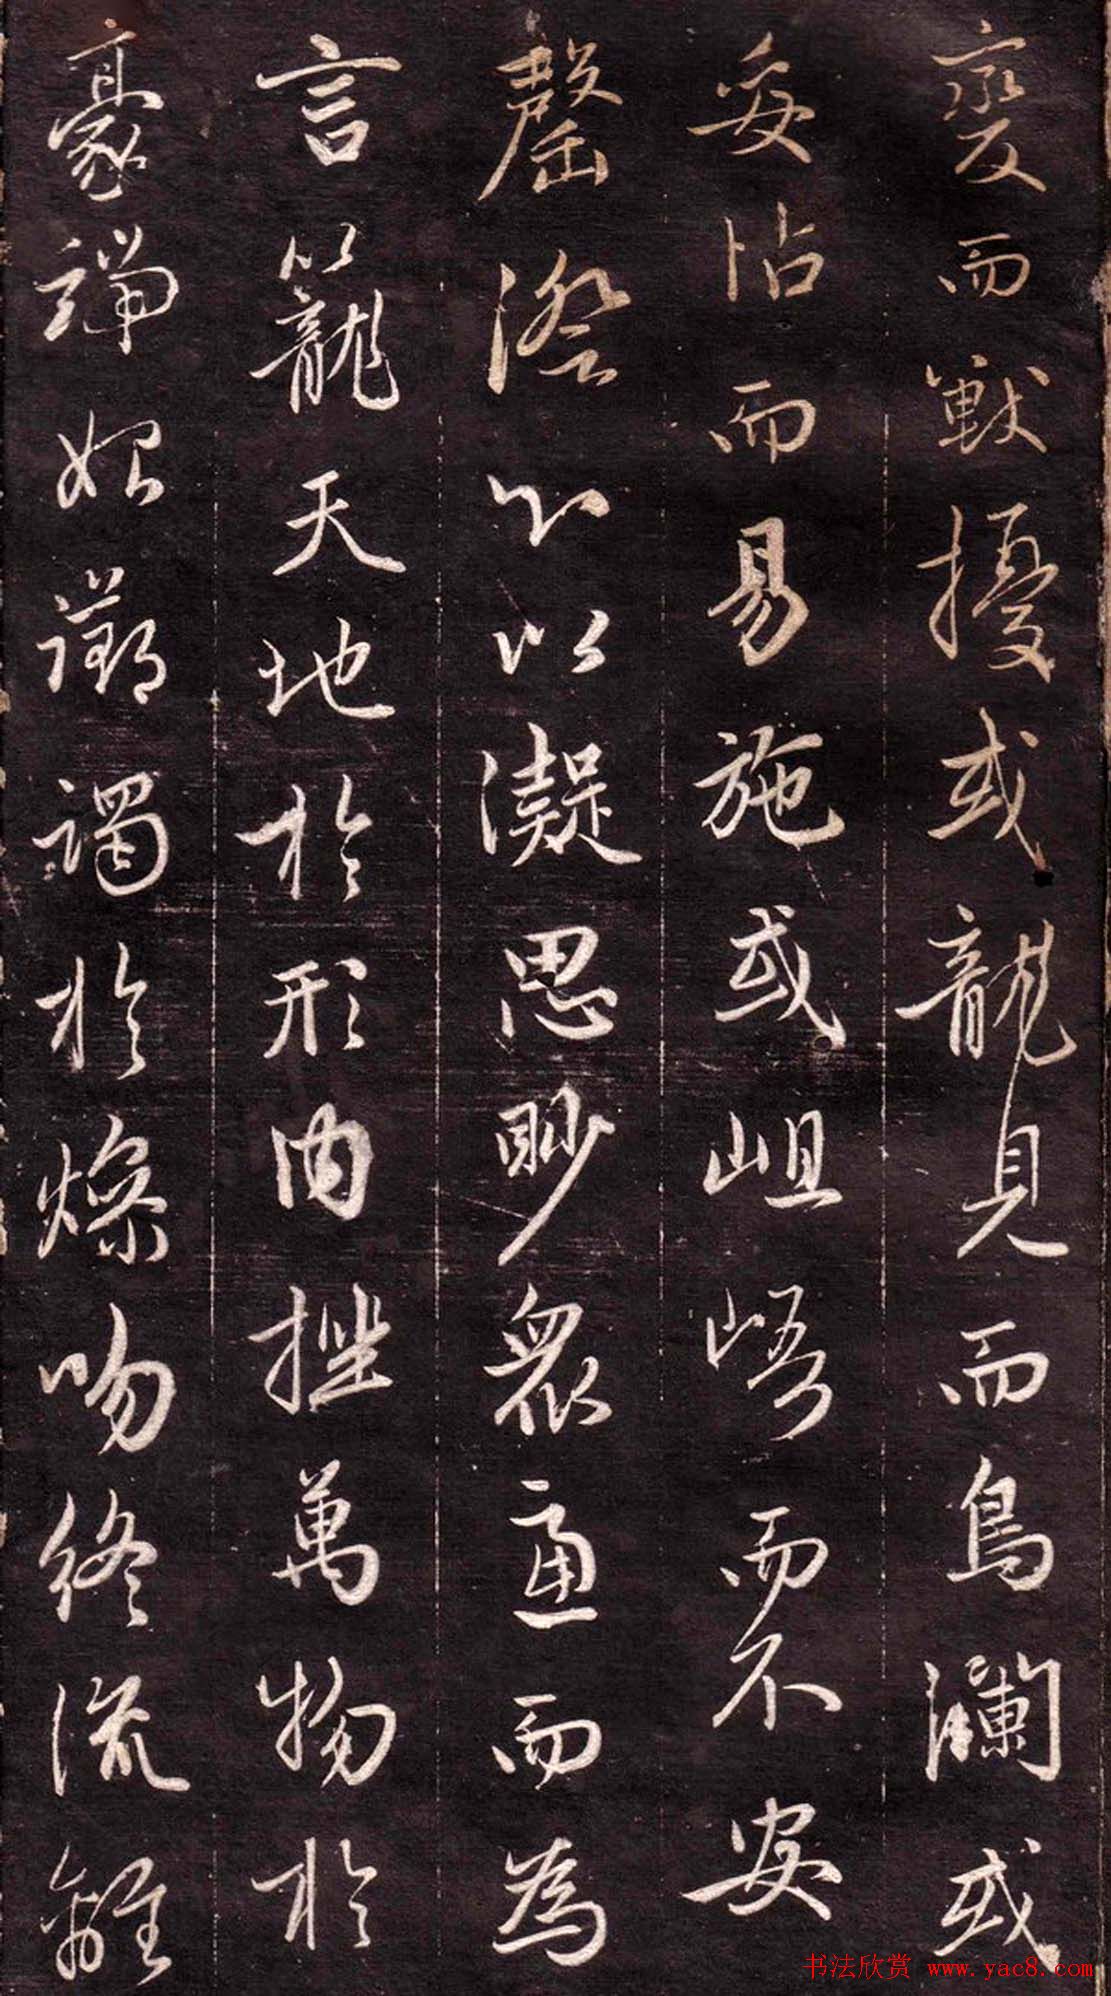 變而獸擾或龍見而鳥瀾或
妥帖而易施或岨峿而不安
罄澄心以凝思眇衆慮而為
言籠天地於形內挫萬物於
豪端始躑躅於燥吻終流離
书法欣赏 www.yac8.com